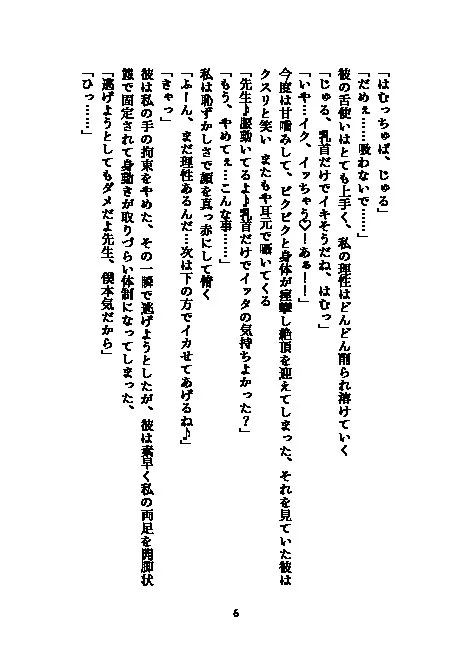 「はむっちゅぱ、じゅる」
「だめぇ……吸わないで……」
彼の舌使いはとても上手く、私の理性はどんどん削られ溶けていく
「じゅる、乳首だけでイキそうだね、はむっ」
「いや…イク、イッちゃう♡！あぁーー！」
今度は甘噛みして、ビクビクと身体が痙攣し絶頂を迎えてしまった、それを見ていた彼は
クスリと笑い またもや耳元で囁いてくる
「先生♪腰動いてるよ♪乳首だけでイッタの気持ちよかった？」
「もう、やめてぇ…こんな事……」
私は恥ずかしさで顔を真っ赤にして俯く
「ふーん、まだ理性あるんだ…次は下の方でイカせてあげるね♪」
「きゃっ」
彼は私の手の拘束をやめた、その一瞬で逃げようとしたが、彼は素早く私の両足を開脚状
態で固定されて身動きが取りづらい体制になってしまった、
「逃げようとしてもダメだよ先生、僕本気だから」
「ひっ……」
6